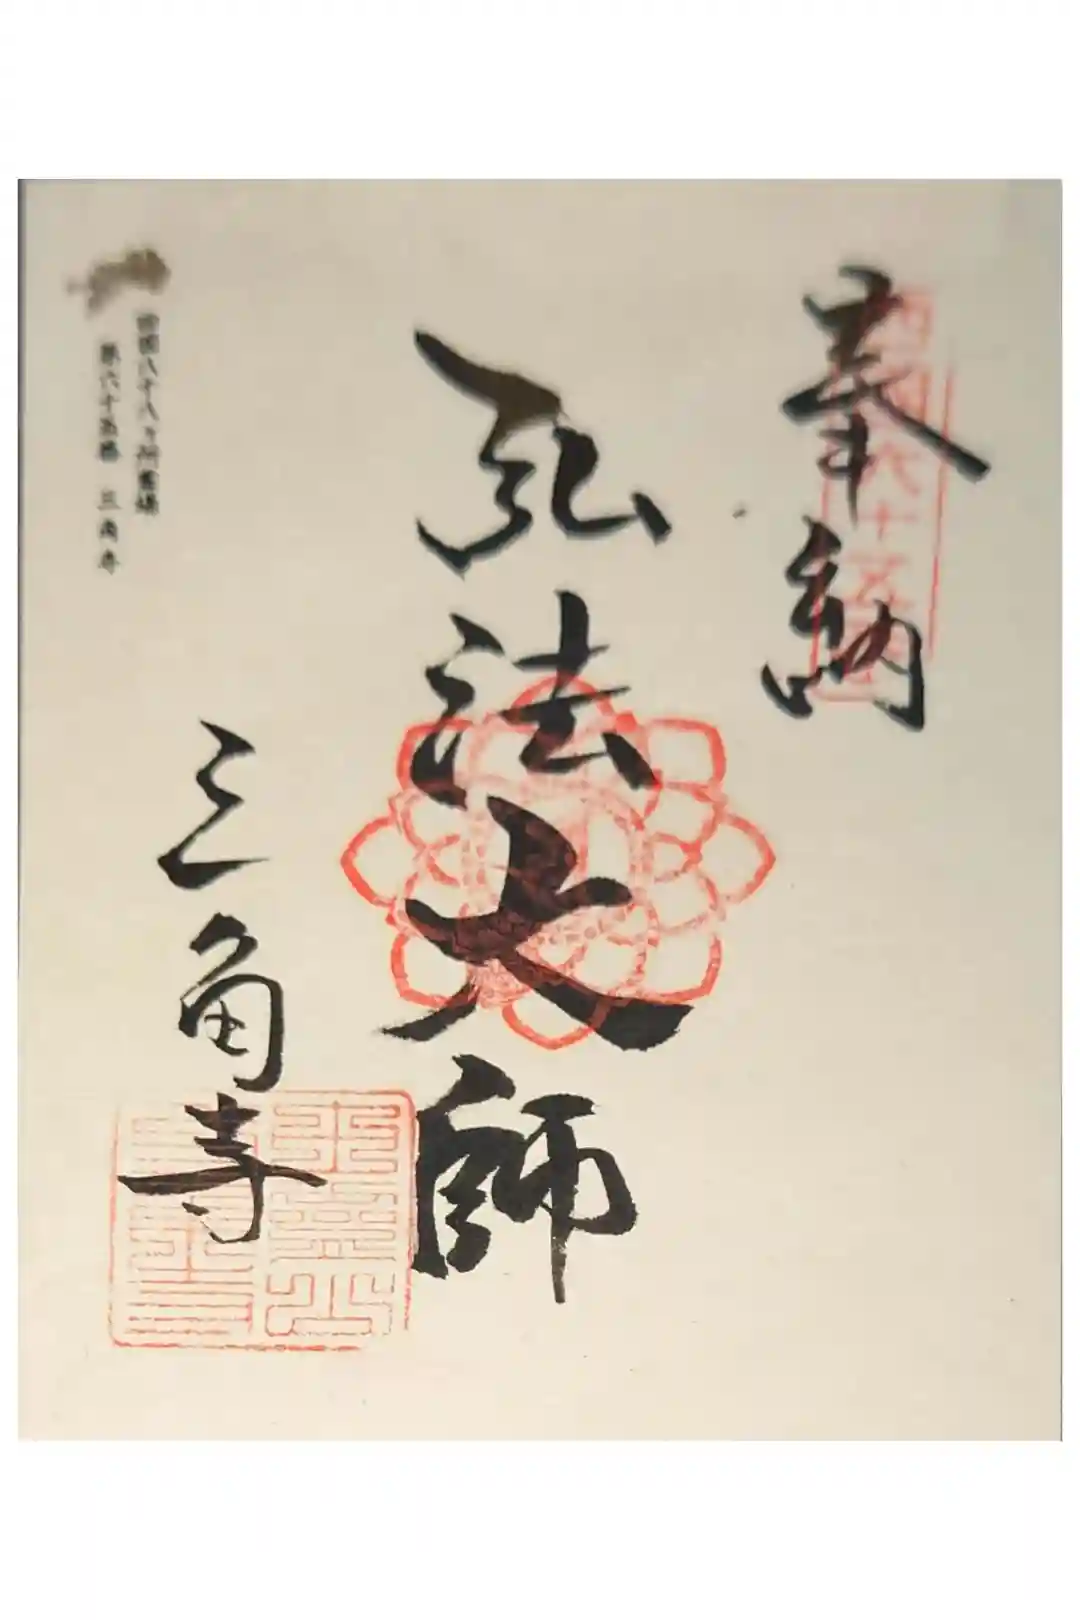 奉納
六十五
弘法大師
三角寺
四国八十八ヶ所霊場
第六十五番 三角寺